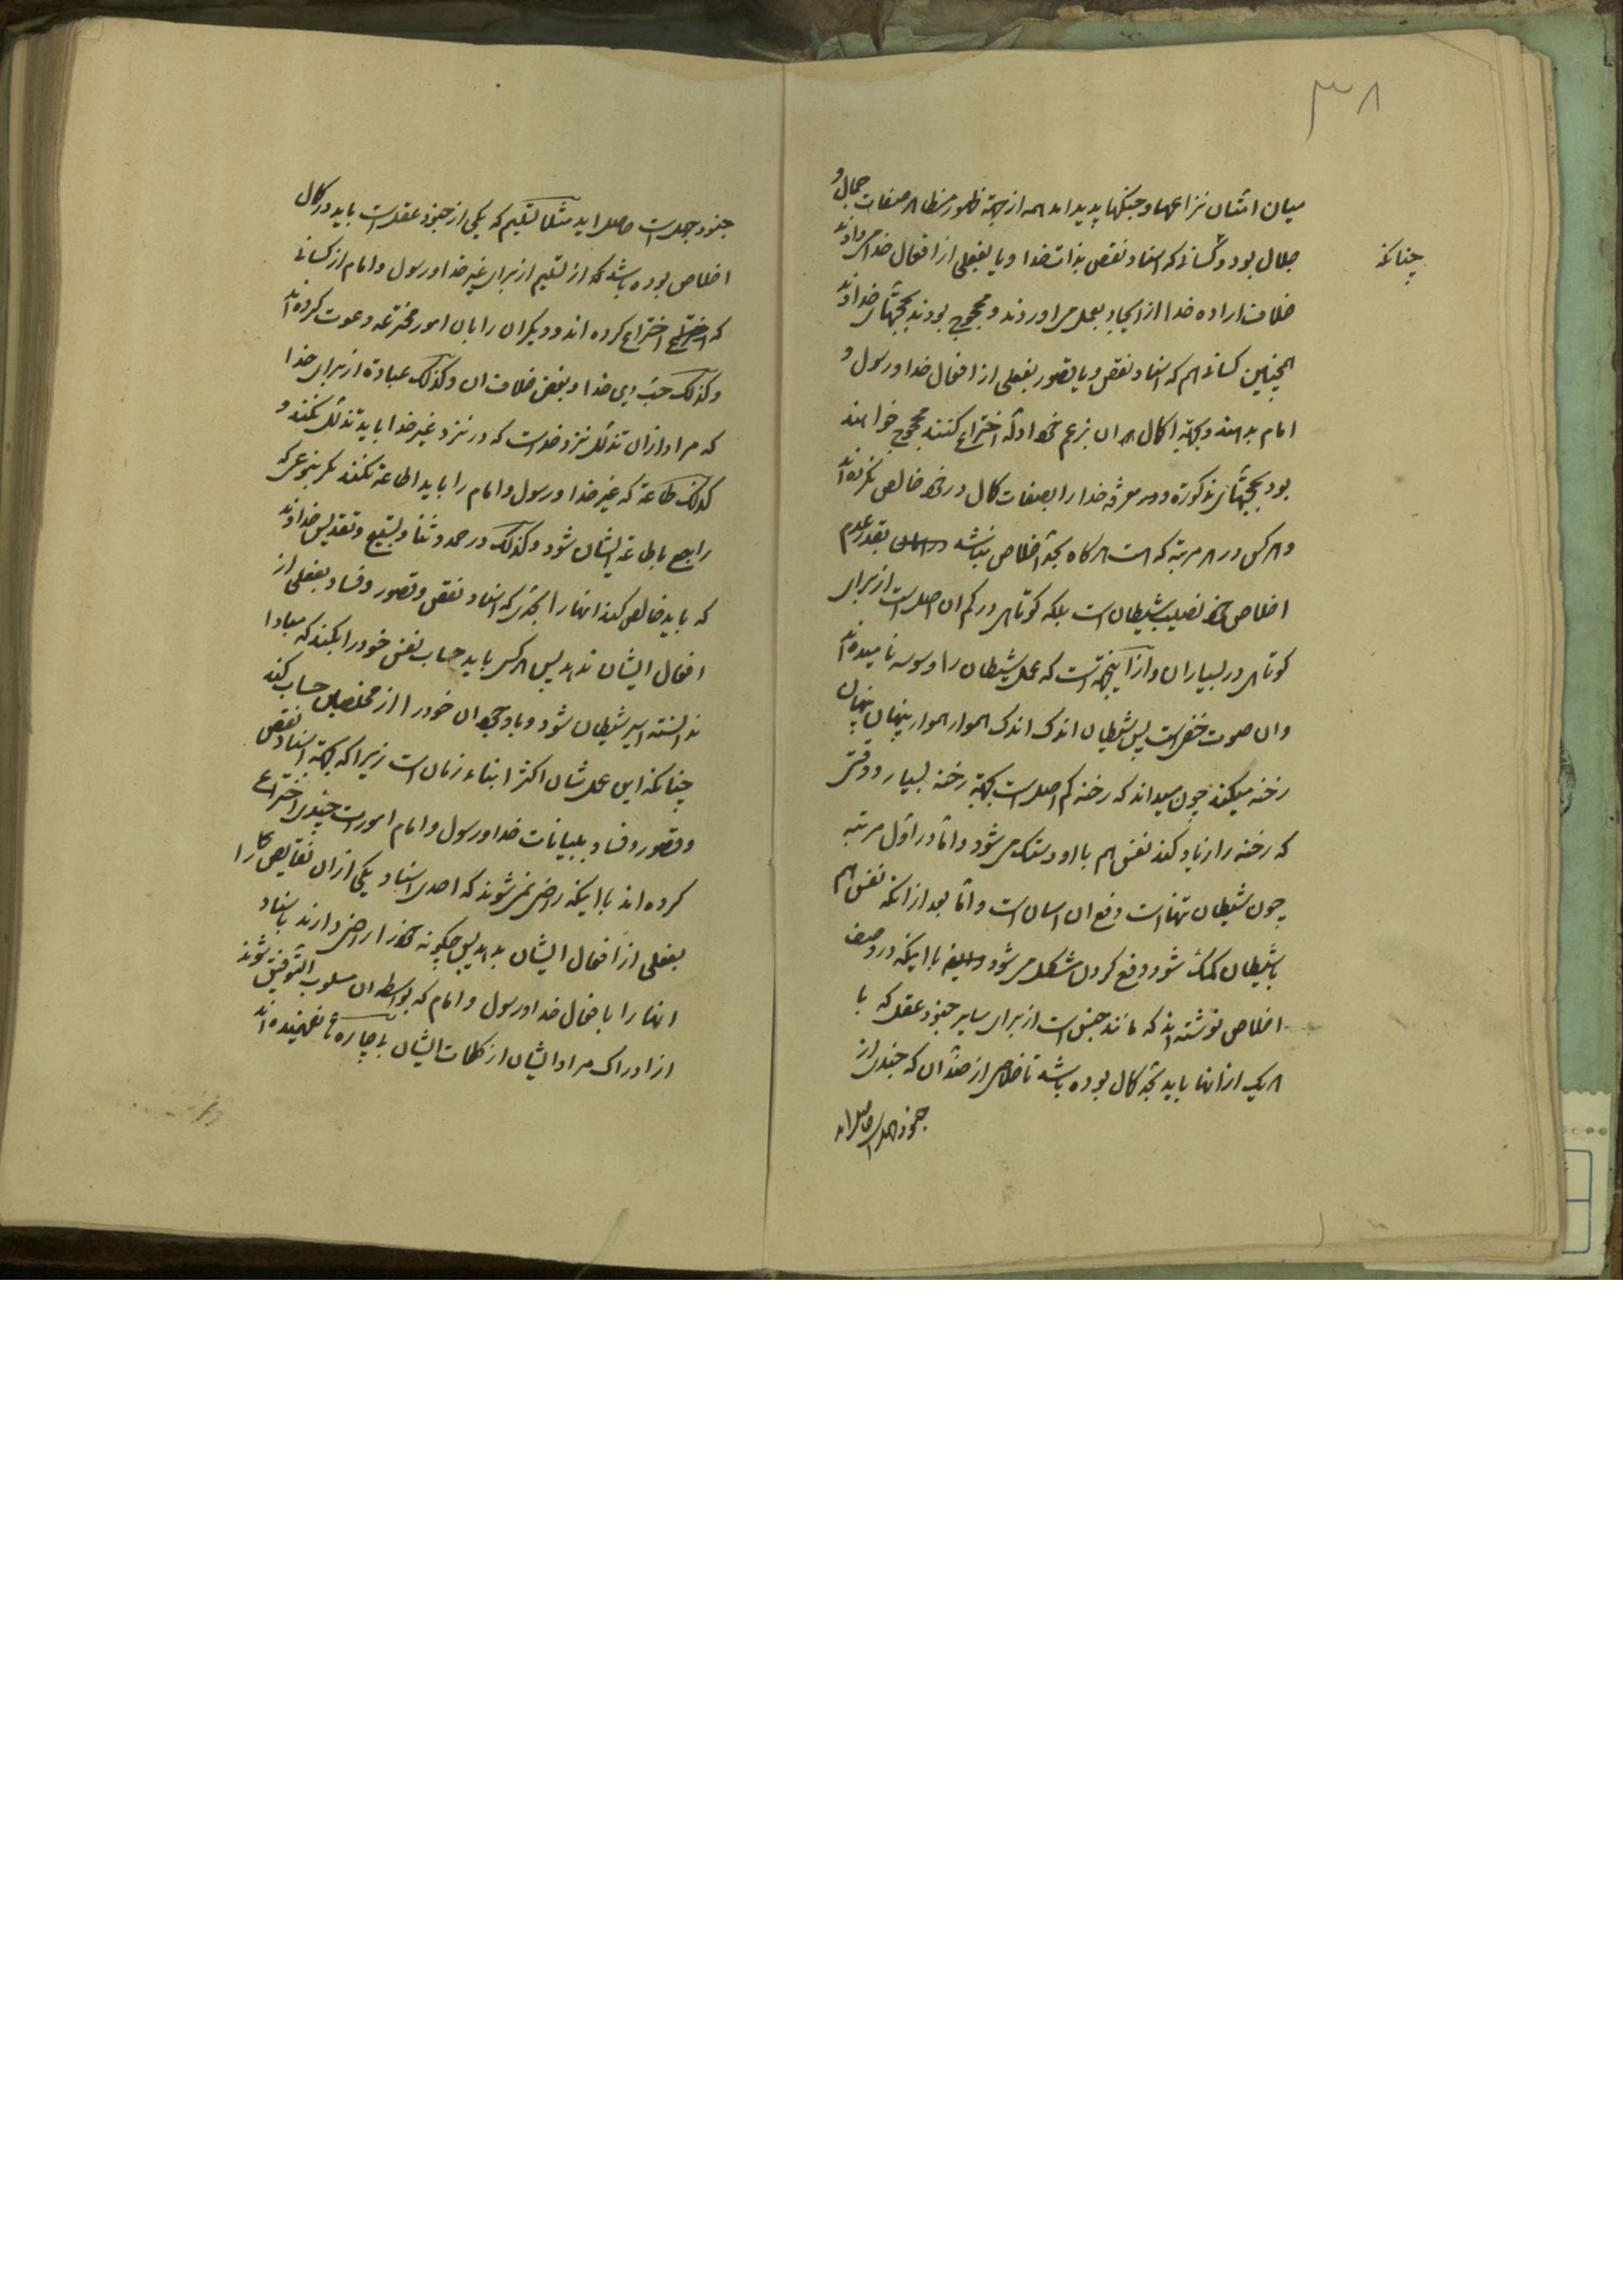 ۳۸
میان امتان نزاعها و جنکها پدید امد همه از جهة ظهور مظاهر صفات جمال و
جلال بود و کسانی که اسناد نقص بذات خدا و یا بفعلی از افعال خدا می دادند
چنانکه
خلاف اراده خدا از ایجاد بعمل می اوردند و محجوج بودند بحجتهای خداوند
همچنین کسانی هم که اسناد نقص و یا قصور بفعلی از افعال خدا و رسول و
امام بدهند و بجهة اکمال هر ان بزعم خود ادله اختراع کنند محجوج خواهند
بود بحجتهای مذکوره و در معرفة خدا را بصفات کمال در خود خالص نکرده اند
و هر کس در هر مرتبه که است هر کاه بحد اخلاص نباشد بقدر عدم
اخلاص خود نصیب شیطان است بلکه کوتاهی در کم ان اصل است از برای
کوتاهی در بسیار ان و از اینجهة است که عمل شیطان را وسوسه نامیده اند
و ان صوت خفی است پس شیطان اندک اندک هموار هموار پنهان پنهان
رخنه میکند چون میداند که رخنه کم اصل است بجهة رخنه بسیار و وقتی
که رخنه را زیاد کند نفس هم با او دستک می شود و اما در اول مرتبه
چون شیطان تنها است دفع ان اسان است و اما بعد از انکه نفس هم
باشیطان کمک شود دفع کردن مشکل می شود با اینکه در وصف
اخلاص نوشته اند که مانند جنس است از برای سایر جنود عقل که با
هر یک از انها باید بحد کمال بوده باشد تا خلاصی از ضد ان که جندی از
جنود جهل است حاصل اید
جنود جهل است حاصل اید مثلا تسلیم که یکی از جنود عقل است باید در کمال
اخلاص بوده باشد که از تسلیم از برای غیر خدا و رسول و امام از کسانی
که اختراع اختراع کرده اند و دیکران را بان امور مخترعه دعوت کرده اند
و کذلک حب برای خدا و بغض خلاف ان و کذلک عبادة از برای خدا
که مراد از ان تذلل نزد خدا است که در نزد غیر خدا باید تذلل نکند و
کذلک طاعة که غیر خدا و رسول و امام را باید اطاعة نکند مکر بنحوی که
راجع باطاعة ایشان شود و کذلک در حمد و ثنا و تسبیح و تقدیس خداوند
که باید خالص کند انها را بحدی که اسناد نقص و قصور و فساد بفعلی از
افعال ایشان ندهد پس هر کس باید حساب نفس خود را بکند که مبادا
ندانسته اسیر شیطان شود و با وجود ان خود را از مخلصان حساب کند
چنانکه این عمل شان اکثر ابناء زمان است زیرا که بجهة اسناد نقص
و قصور و فساد ببیانات خدا و رسول و امام امورات چندی اختراع
کرده اند با اینکه راضی نمی شوند که احدی اسناد یکی از ان نقایص کار را
بفعلی از افعال ایشان بدهد پس چکونه خود را راضی دارند باسناد
انها را بافعال خدا و رسول و امام که بواسطه ان مسلوب التوفیق شوند
از ادراک مراد ایشان از کلمات ایشان بیچاره ها نفهمیده اند